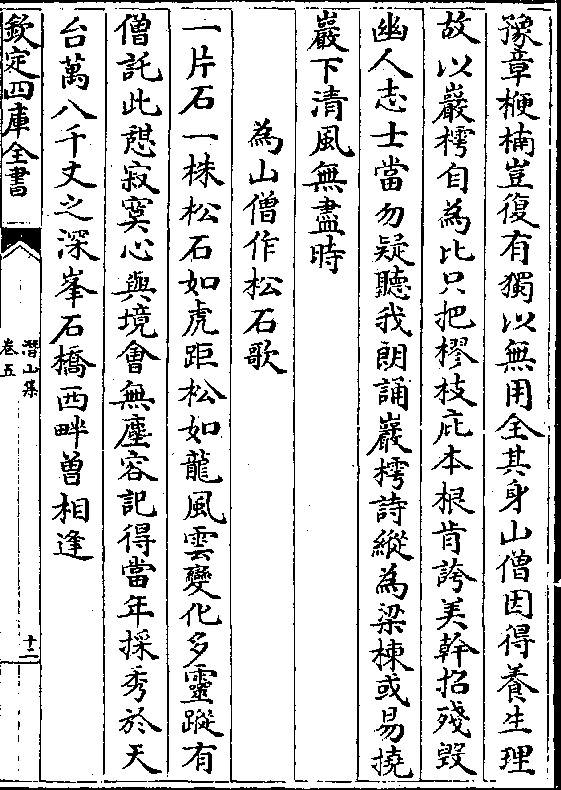 豫章楩楠豈復有獨以無用全其身山僧因得養生理
故以巖樗自為比只把樛枝庇本根肯誇美幹招殘毀
幽人志士當勿疑聽我朗誦巖樗詩縱為梁棟或易撓
巖下清風無盡時
為山僧作松石歌
一片石一株松石如虎距松如龍風雲變化多靈蹤有
僧託此憇寂寞心與境會無塵容記得當年採秀於天
台萬八千丈之深峯石橋西畔曾相逢
欽定四庫全書
潛山集
卷五
十二